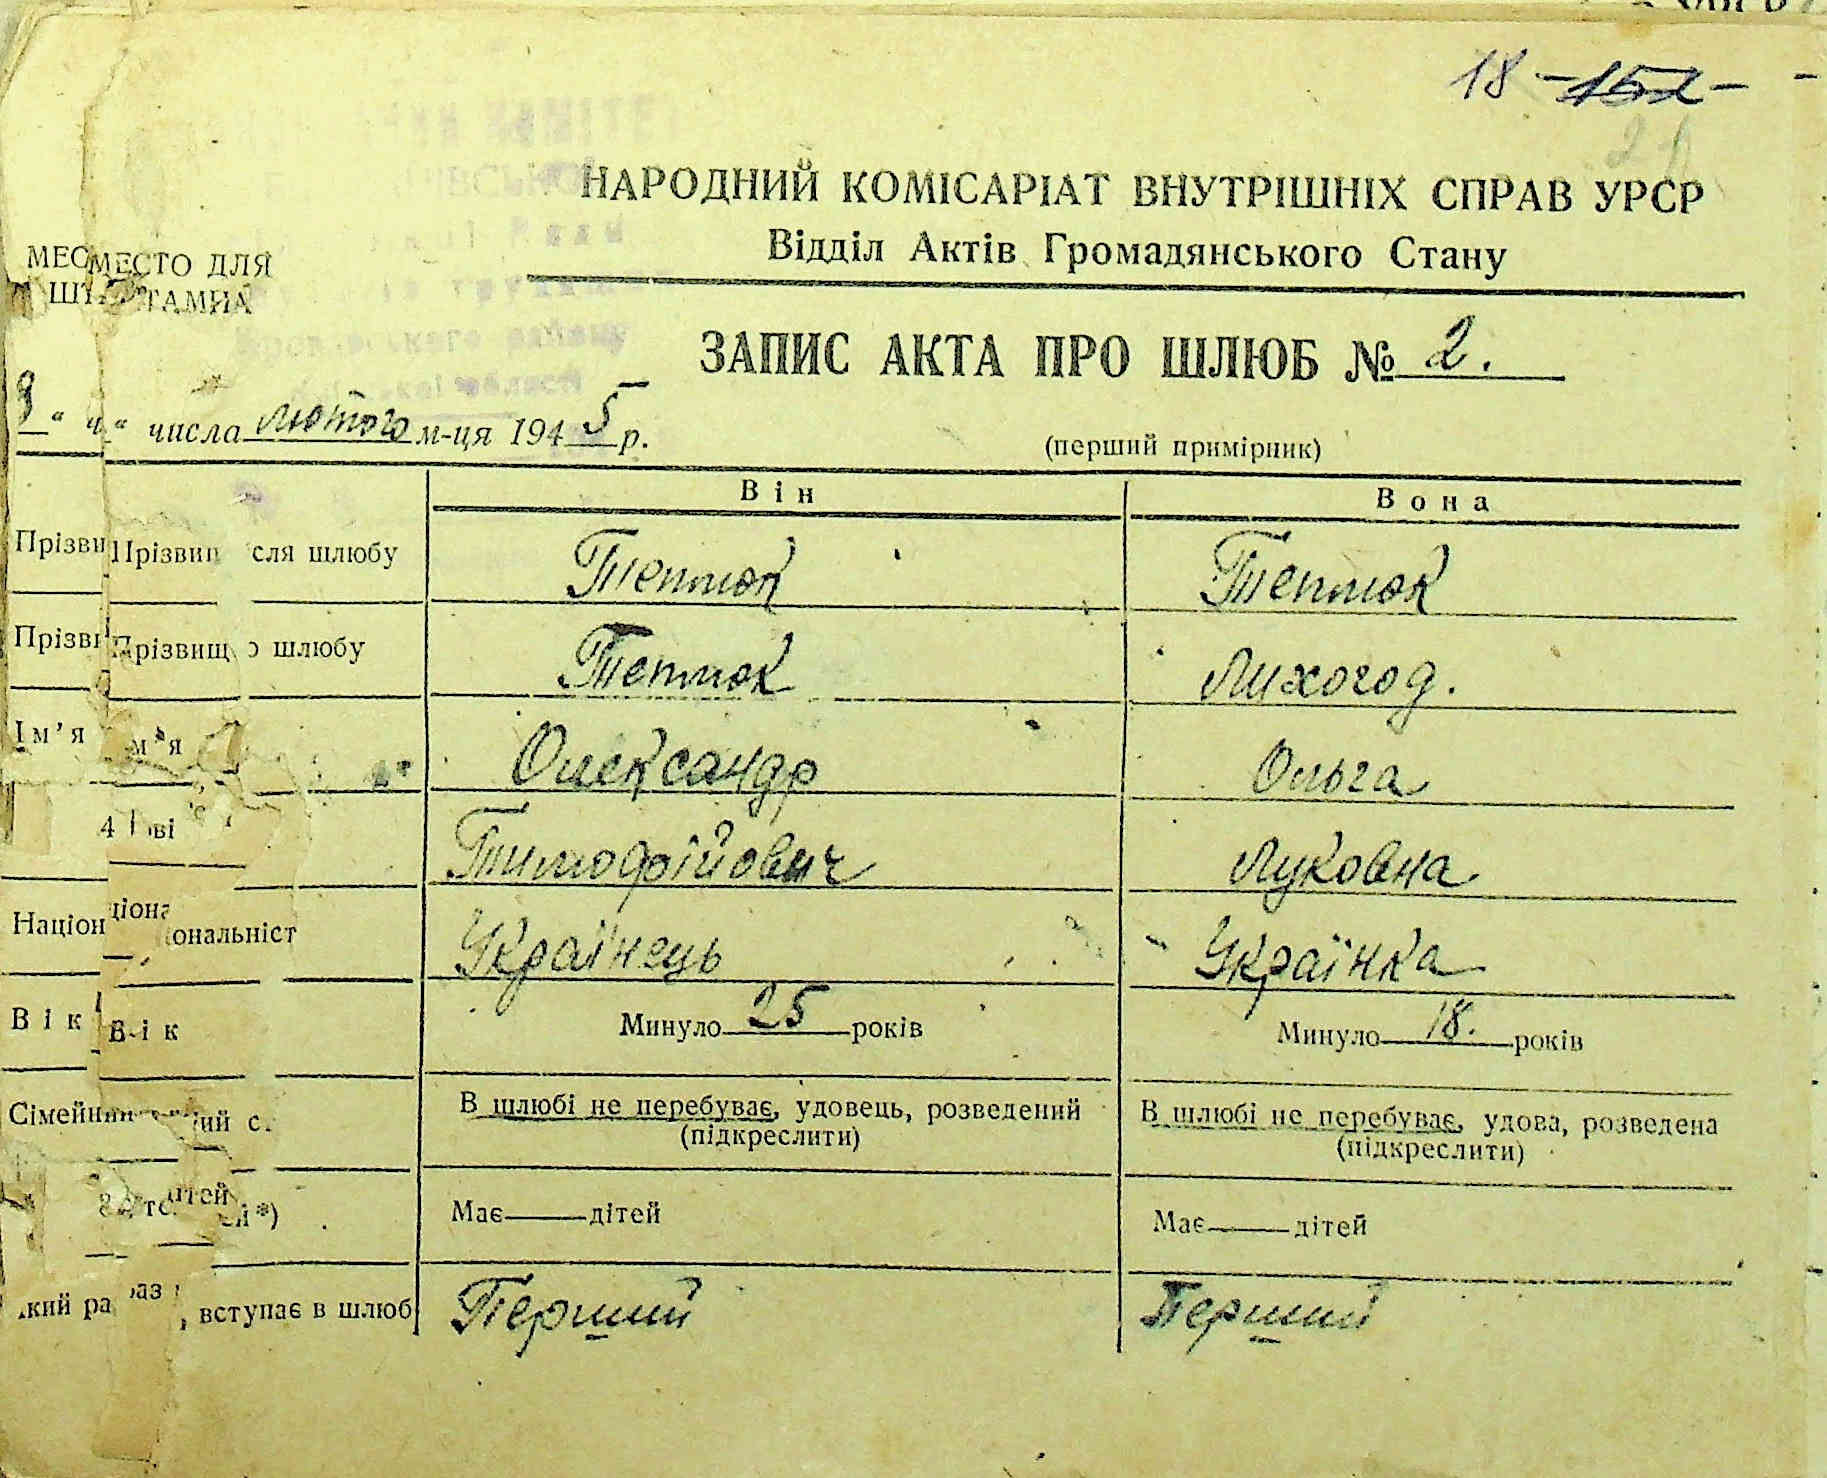 18 - 152 -
НАРОДНИЙ КОМІСАРІАТ ВНУТРІШНІХ СПРАВ УРСР
Відділ Актів Громадянського Стану
МЕС МЕСТО ДЛЯ
ШТ ТАМПА
ЗАПИС АКТА ПРО ШЛЮБ № 2.
" числа лютого м-ця 1945 р.
(перший примірник)
Він Вона
Прізви Прізвищ сля шлюбу Теплюк Теплюк
Прізви Прізвищ о шлюбу Теплюк Лихогод.
Ім'я м'я Олександр Ольга
4 ові Тимофійович Луковна
Націон ціона ональніст Українець Українка
Вік Вік Минуло 25 років Минуло 18. років
Сімейний ий с. В шлюбі не перебуває, удовець, розведений В шлюбі не перебуває, удова, розведена
(підкреслити) (підкреслити)
8 ітей*) Має — дітей Має — дітей
кий ра раз , вступає в шлюб Перший Перший